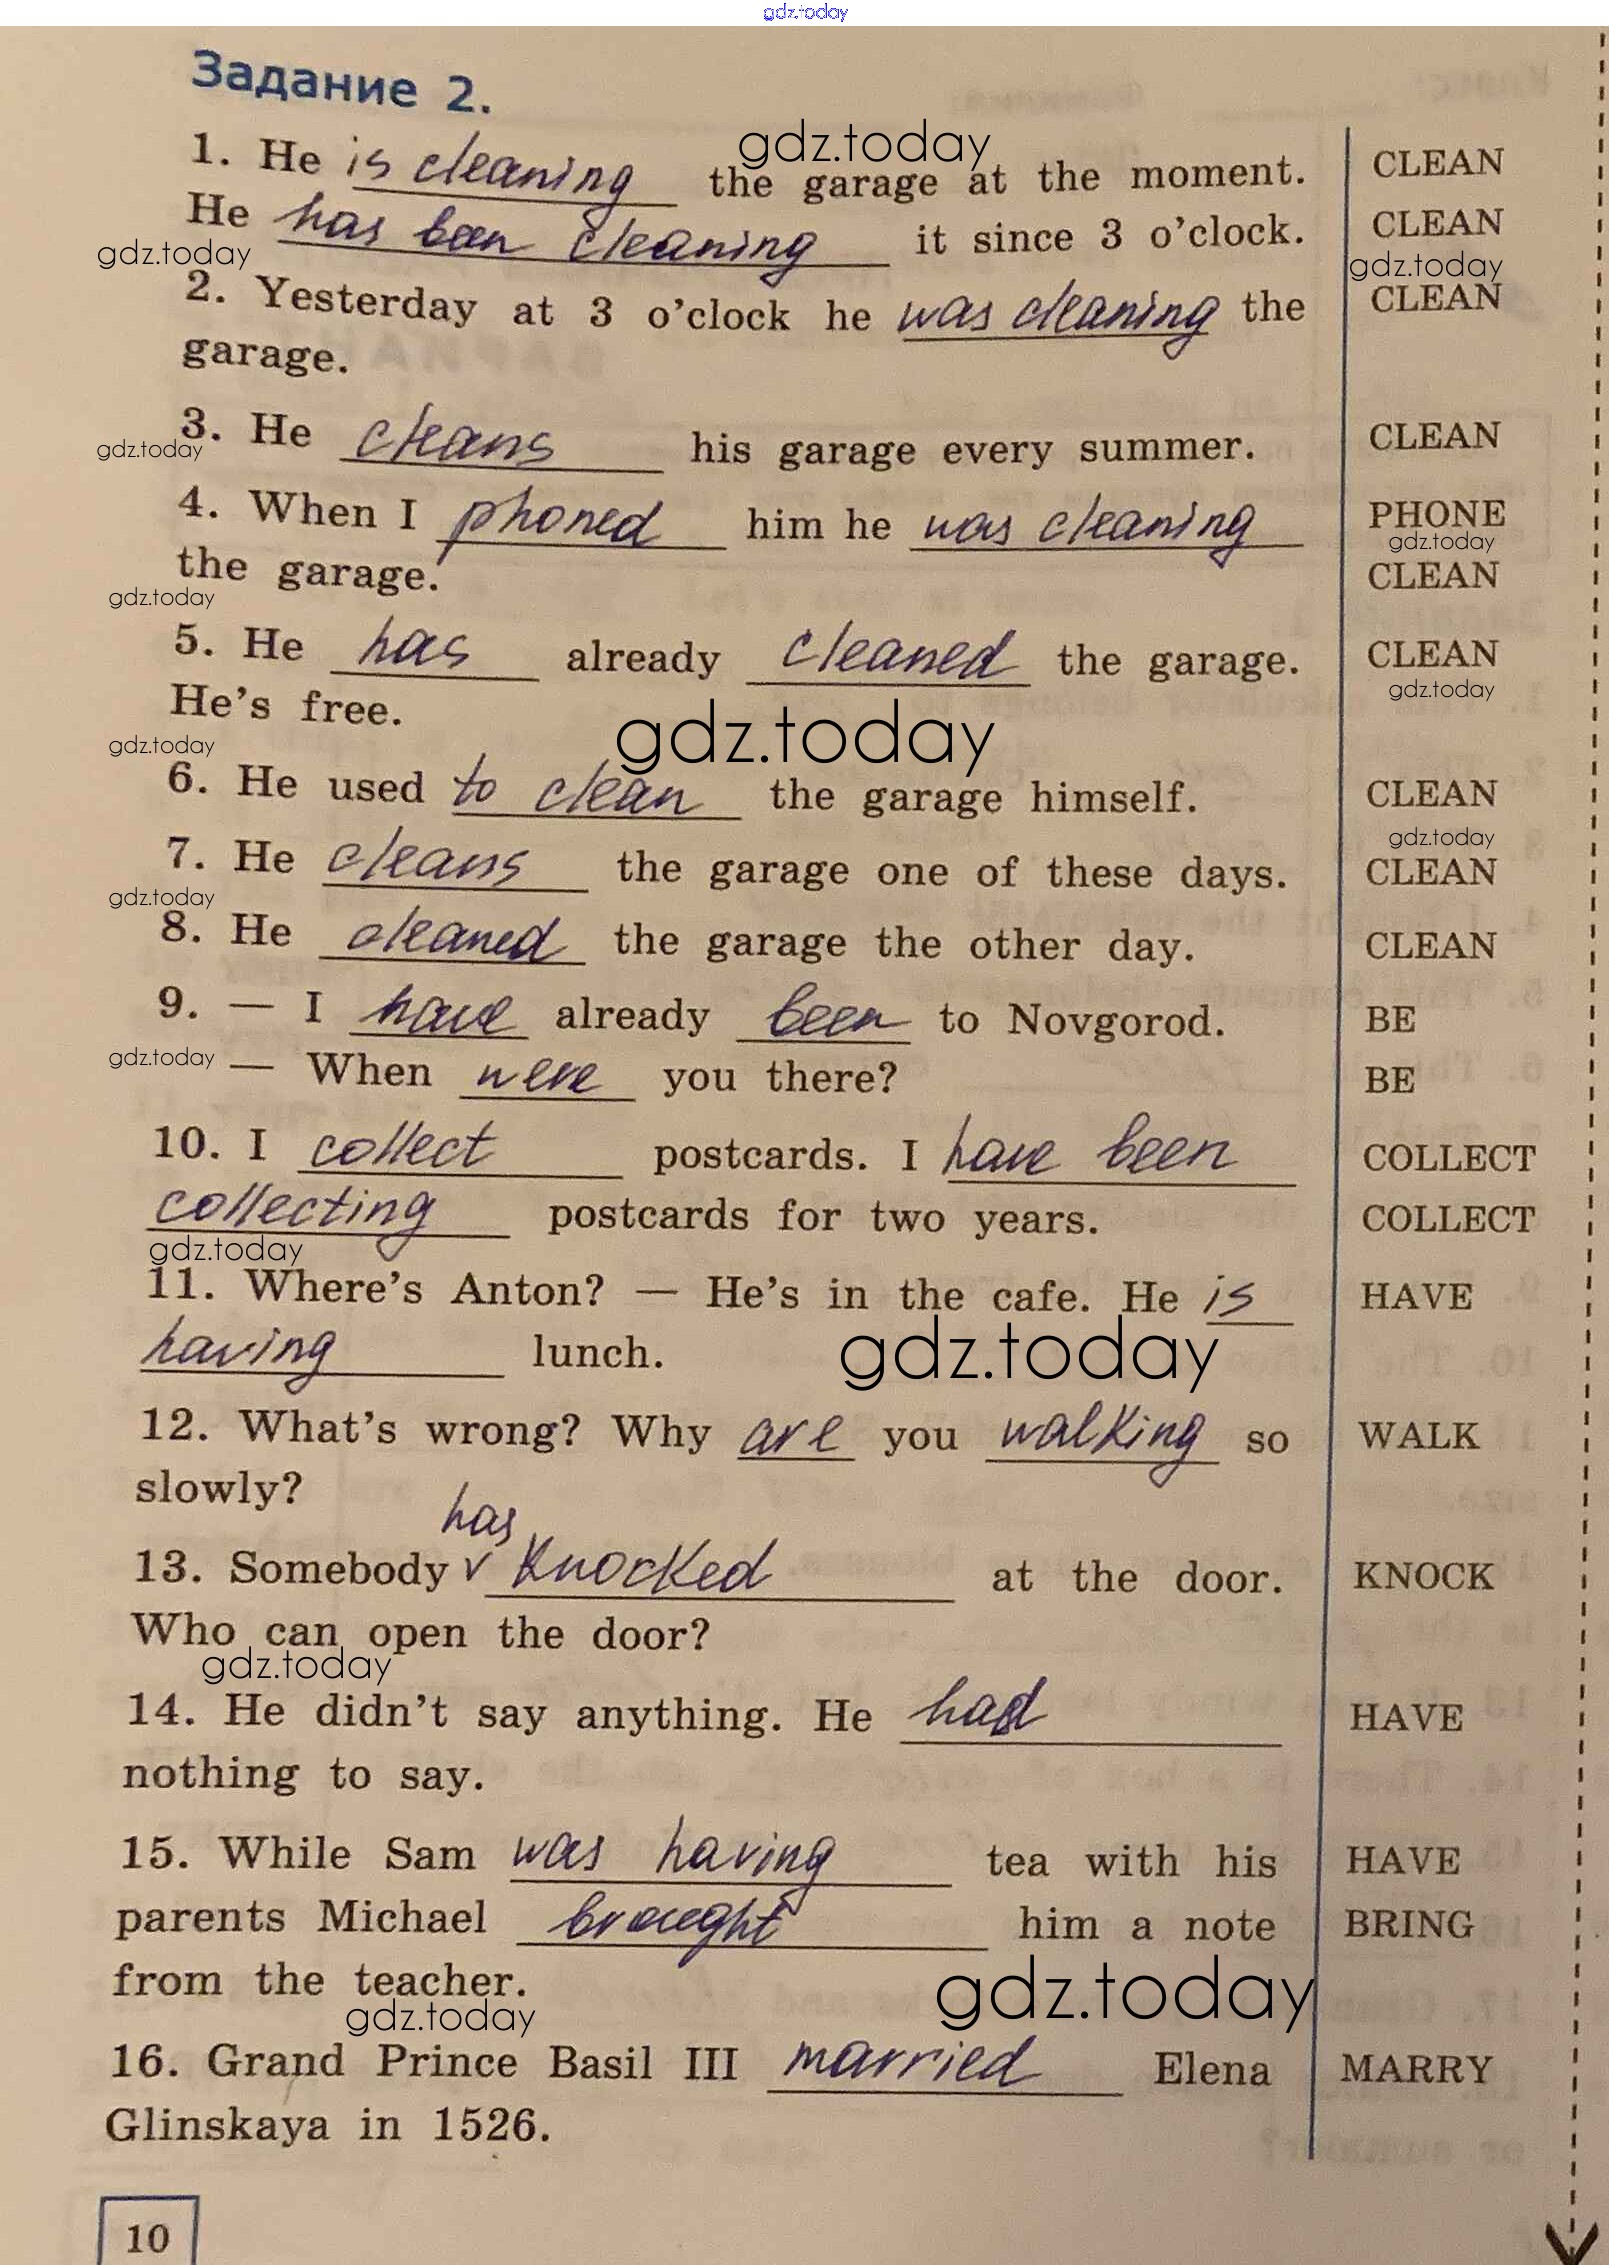 gdz.today
Задание 2.
1. He is cleaning the garage at the moment. CLEAN
gdz.today
He has been cleaning it since 3 o'clock. CLEAN
gdz.today gdz.today
2. Yesterday at 3 o'clock he was cleaning the CLEAN
garage.
3. He cleans his garage every summer. CLEAN
gdz.today
4. When I phoned him he was cleaning PHONE
gdz.today
the garage. CLEAN
gdz.today
5. He has already cleaned the garage. CLEAN
gdz.today
He's free.
gdz.today
gdz.today
6. He used to clean the garage himself. CLEAN
gdz.today
7. He cleans the garage one of these days. CLEAN
gdz.today
8. He cleaned the garage the other day. CLEAN
9. — I have already been to Novgorod. BE
gdz.today
— When were you there? BE
10. I collect postcards. I have been COLLECT
collecting postcards for two years. COLLECT
gdz.today
11. Where's Anton? — He's in the cafe. He is HAVE
having lunch.
gdz.today
12. What's wrong? Why are you walking so WALK
slowly?
has
13. Somebody v knocked at the door. KNOCK
Who can open the door?
gdz.today
14. He didn't say anything. He had HAVE
nothing to say.
15. While Sam was having tea with his HAVE
parents Michael brought him a note BRING
from the teacher.
gdz.today
gdz.today
16. Grand Prince Basil III married Elena MARRY
Glinskaya in 1526.
10